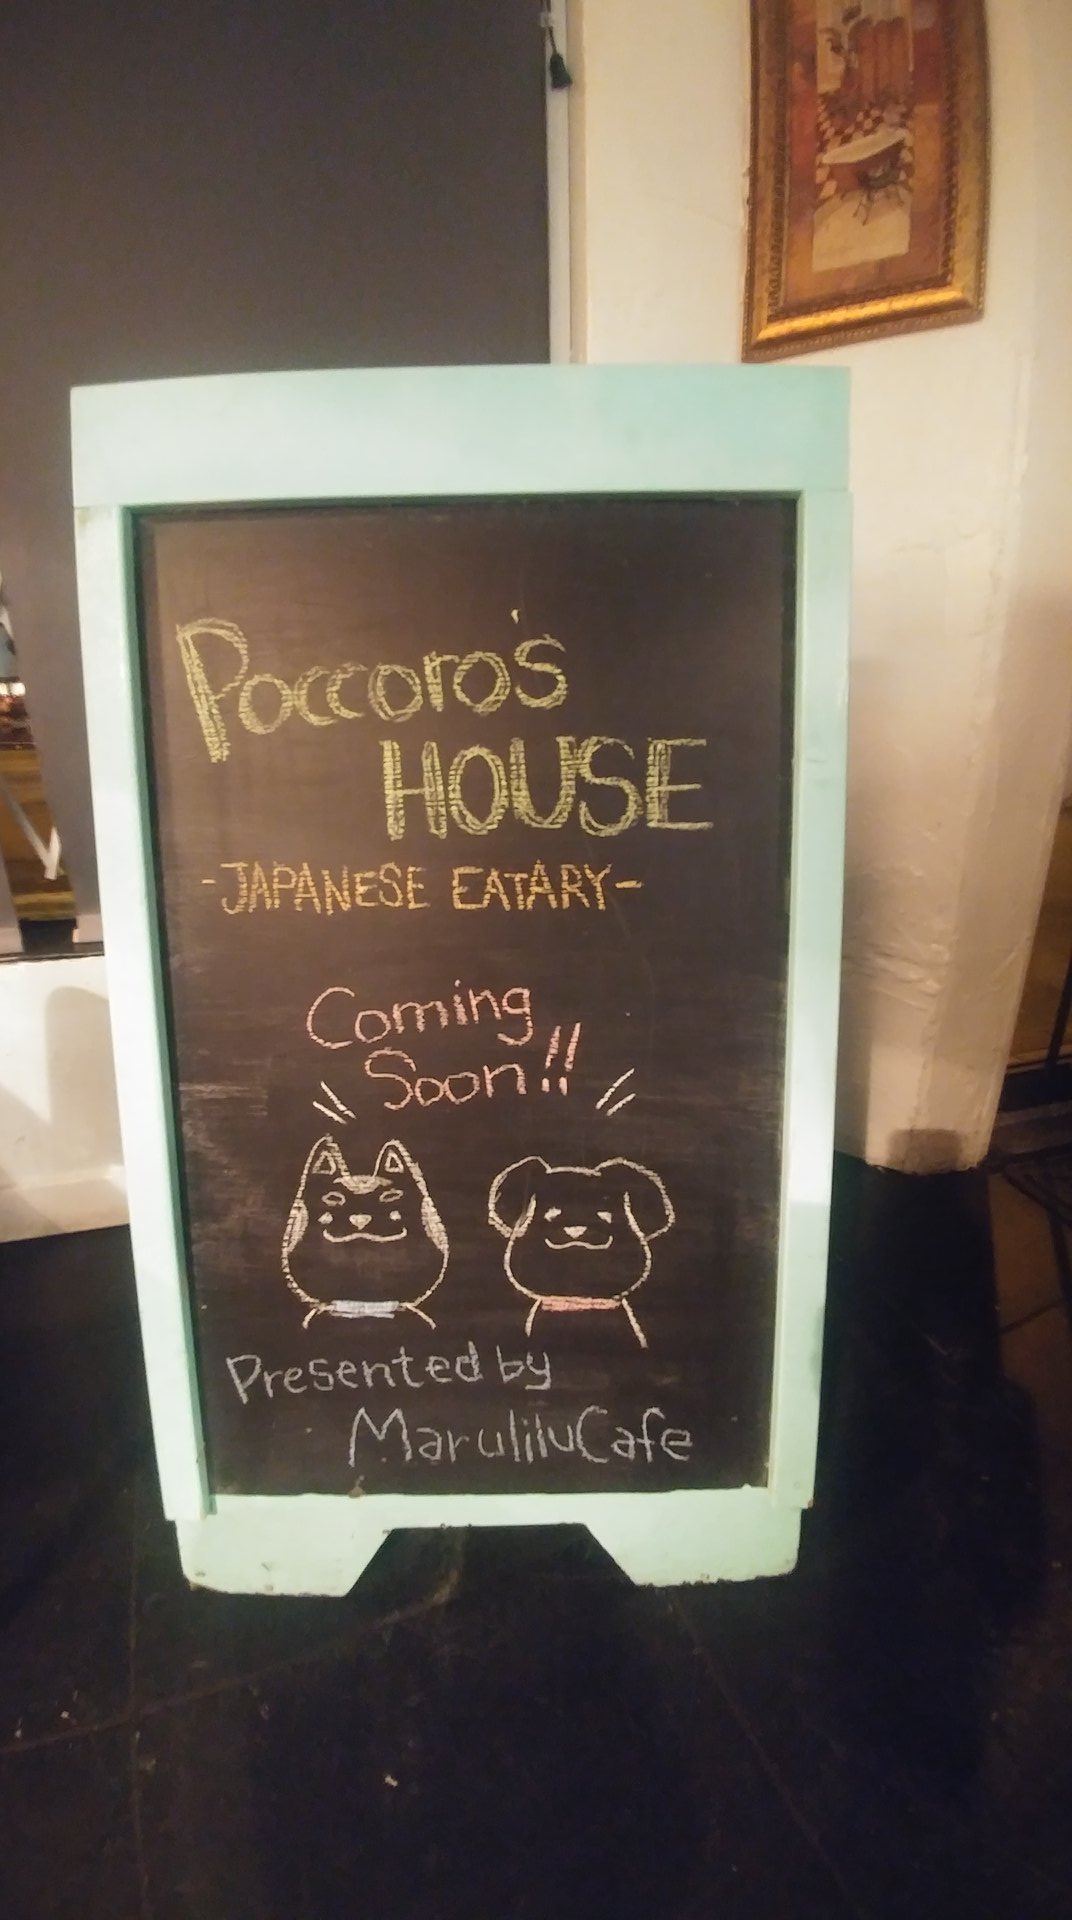 Poccoro's
HOUSE
-JAPANESE EATARY-
Coming
Soon!!
Presented by
MaruliluCafe